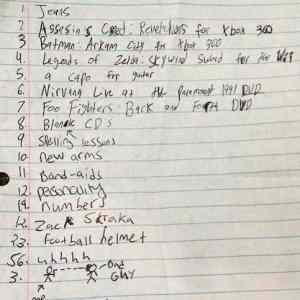 1. Jeans
2 Assassin's Creed: Revelations for Xbox 360
3 Batman: Arkham City for Xbox 360
4. Legends of Zelda: Skyward Sword for the Wii
5. a capo for guitar
6. Nirvana Live at the Paramount 1991 DVD
7 Foo Fighters: Back and Forth DVD
8 Blank CDs
9 Spelling lessons
10 new arms
11 Band-aids
12. personality
14. numbers
12. Zack Skraka
23. football helmet
56. uhhhh
3.
Dad
Guy